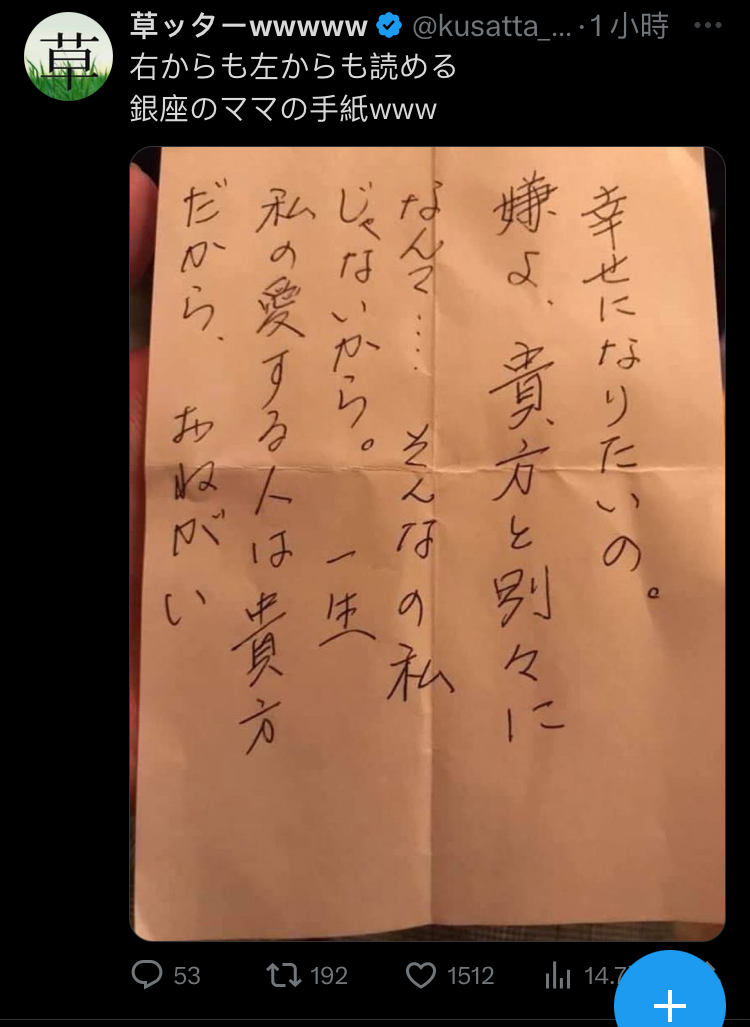 草ッターwwwww @kusatta_... ·1 小時
右からも左からも読める
銀座のママの手紙www
幸せになりたいの。
嫌よ、貴方と別々に
なんて…… そんなの私
じゃないから。 一生
私の愛する人は貴方
だから、 おねがい
53 192 1512 14.7
草